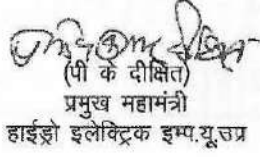 (पी के दीक्षित)
प्रमुख महामंत्री
हाईड्रो इलेक्ट्रिक इम्प.यू.उप्र